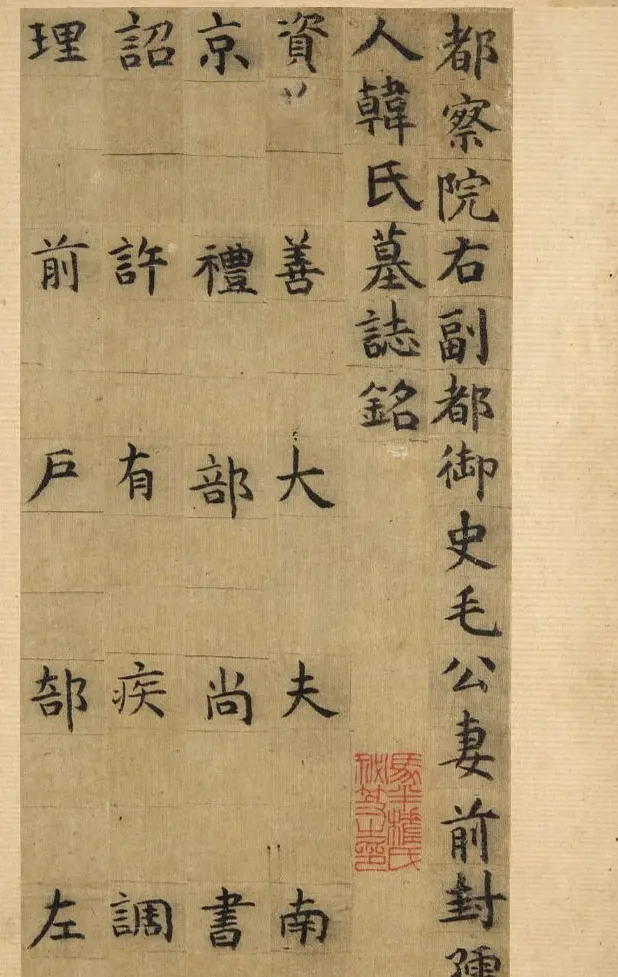 都察院右副都御史毛公妻前封孺
人韓氏墓誌銘
資善大夫南
京禮部尚書
詔許有疾調
理前戶部左